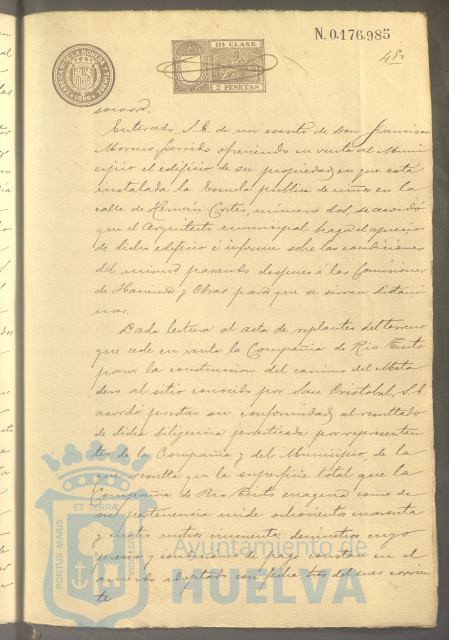 N. 0.176.985
FABRICA DE LA MONEDA Y TIMBRE
1896
11ª CLASE
2 PESETAS
Enterado S. E. de un escrito de Don Francisco
Moreno Garrido ofreciendo en venta al Muni-
cipio el edificio de su propiedad en que está
instalada la Escuela pública de niños en la
calle de Hernán Cortés, número dos, se acordó
que el Arquitecto municipal haga el aprecio
de dicho edificio é informe sobre las condiciones
del mismo pasando después á las Comisiones
de Hacienda y Obras para que se sirvan dictami-
nar.
Dada lectura al acta de replanteo del terreno
que cede en venta la Compañía de Rio Tinto
para la construcción del camino del Mata
dero al sitio conocido por San Cristobal, S. E.
acordó prestar su conformidad al resultado
de dicha diligencia practicada por representan
tes de la Compañía y del Municipio, de la
que resulta que la superficie total que la
Compañía de Rio Tinto enagena como de
su pertenencia mide ochocientos cuarenta
y cuatro metros cincuenta decímetros cuyo
precio y condiciones de pago constan en el
acuerdo adoptado con fecha tres del mes corrien
te
PORTUS MARIS
ET TERRAE
Ayuntamiento de
HUELVA